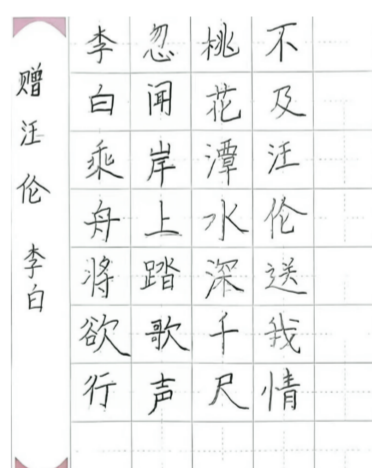 赠汪伦 李白
李白乘舟将欲行
忽闻岸上踏歌声
桃花潭水深千尺
不及汪伦送我情